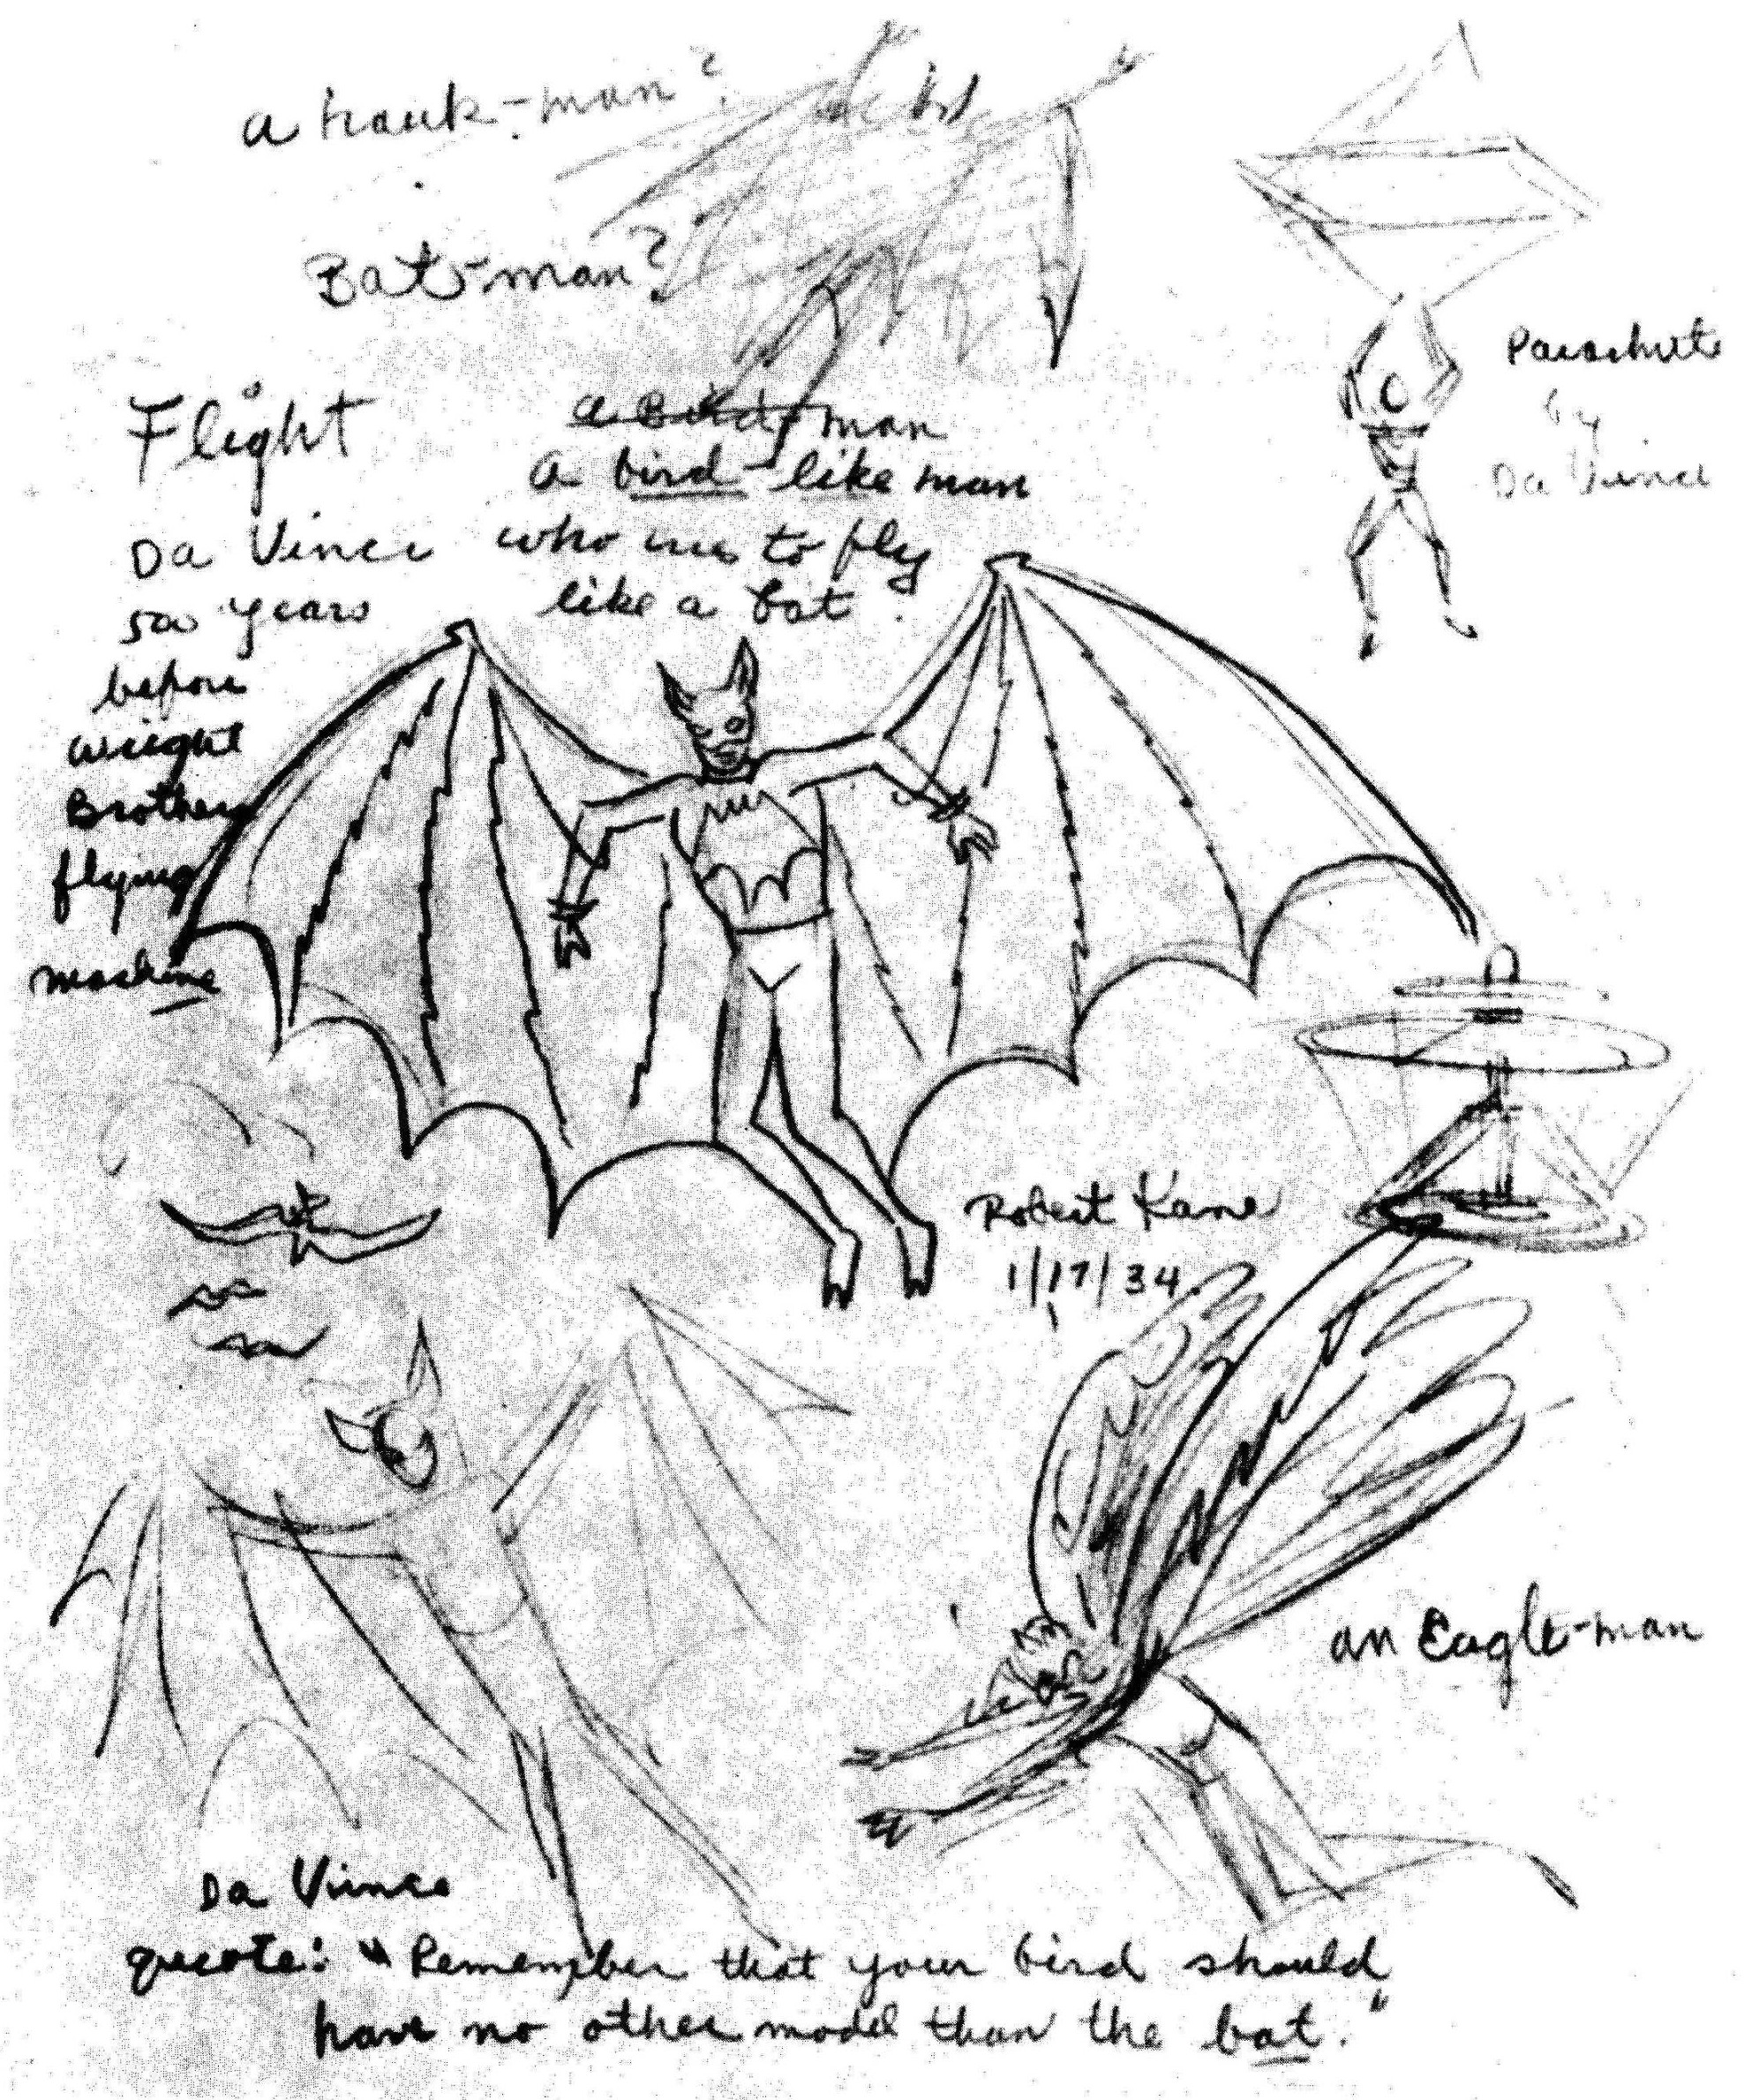 a hauk-man?
Bat-man?
Parachute
by
Da Vinci
Flight
a Bird-man
a bird-like man
who us to fly
like a bat.
Da Vinci
500 years
before
wright
Brothers
flying
machine
Robert Kane
1/17/34
an Eagle-man
Da Vinci
quote: "Remember that your bird should
have no other model than the bat."